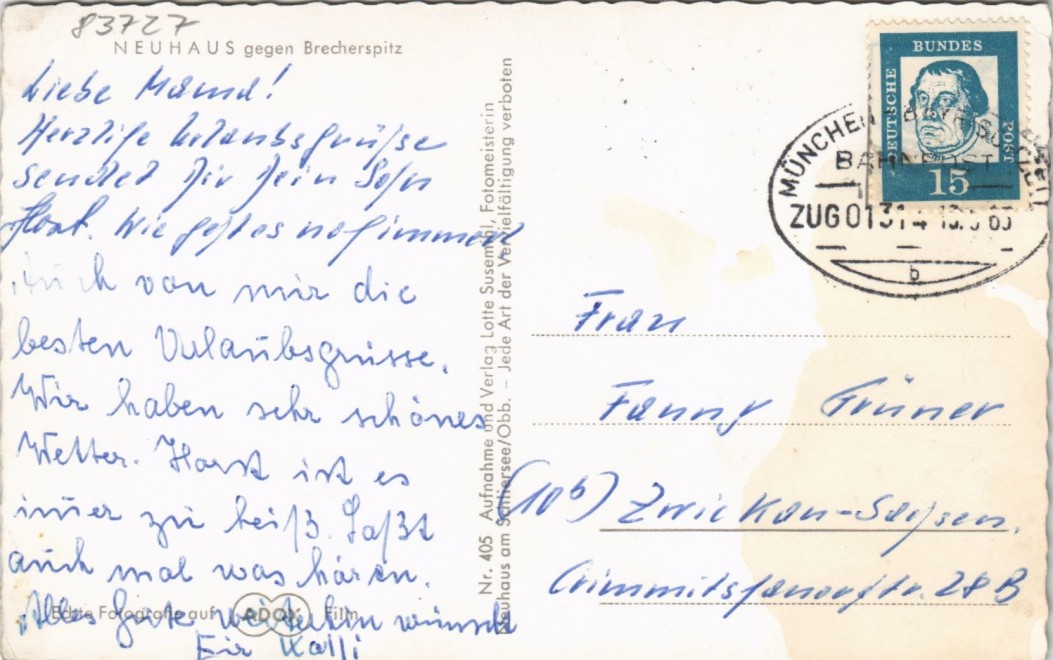 83727
NEUHAUS gegen Brecherspitz
Liebe Mama!
Herzliche Urlaubsgrüsse
sendet Dir Dein Sohn
Horst. Wie geht es noch immer
Auch von mir die
besten Urlaubsgrüsse.
Wir haben sehr schönes
Wetter. Horst ist es
imer zu heiß. Laßt
auch mal was hören.
Alles Gute weiterhin wünscht
Eir Kalli
Echte Fotografie auf ADOX Film
Nr. 405 Aufnahme und Verlag Lotte Susemihl, Fotomeisterin
Neuhaus am Schliersee/Obb. – Jede Art der Vervielfältigung verboten
DEUTSCHE BUNDES POST
15
MÜNCHEN
BAHNPOST
ZUG 01314
b
Frau
Fanny Grüner
(10b) Zwickau-Sachsen.
Crimmitschauerstr. 28B